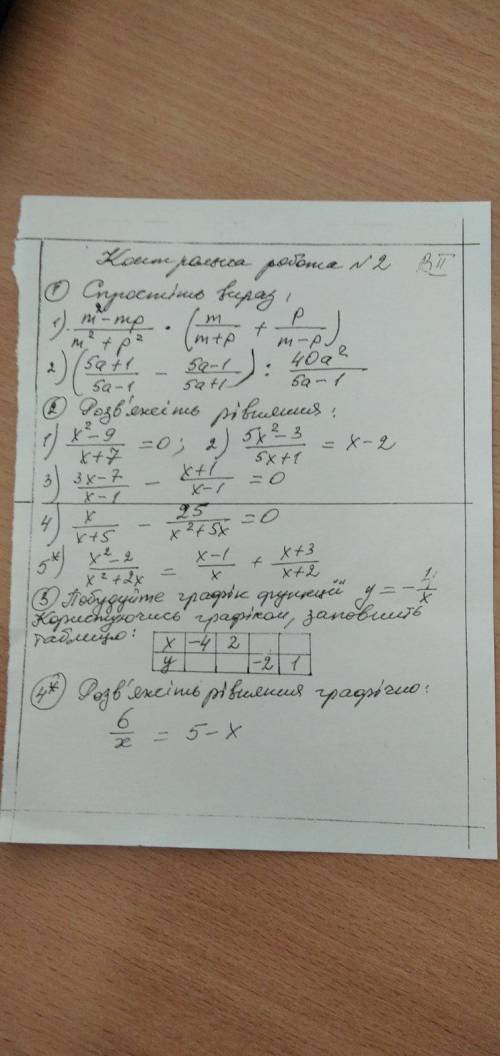 Контрольна робота №2 ВII
① Спростіть вираз:
1) (m² - mp)/(m² + p²) · (m/(m+p) + p/(m-p))
2) ((5a+1)/(5a-1) - (5a-1)/(5a+1)) : 40a²/(5a-1)
② Розв'яжіть рівняння:
1) (x²-9)/(x+7) = 0; 2) (5x²-3)/(5x+1) = x-2
3) (3x-7)/(x-1) - (x+1)/(x-1) = 0
4) x/(x+5) - 25/(x²+5x) = 0
5*) (x²-2)/(x²+2x) = (x-1)/x + (x+3)/(x+2)
③ Побудуйте графік функції y = -1/x
Користуючись графіком, заповніть
таблицю:
x -4 2
y -2 1
④* Розв'яжіть рівняння графічно:
6/x = 5-x